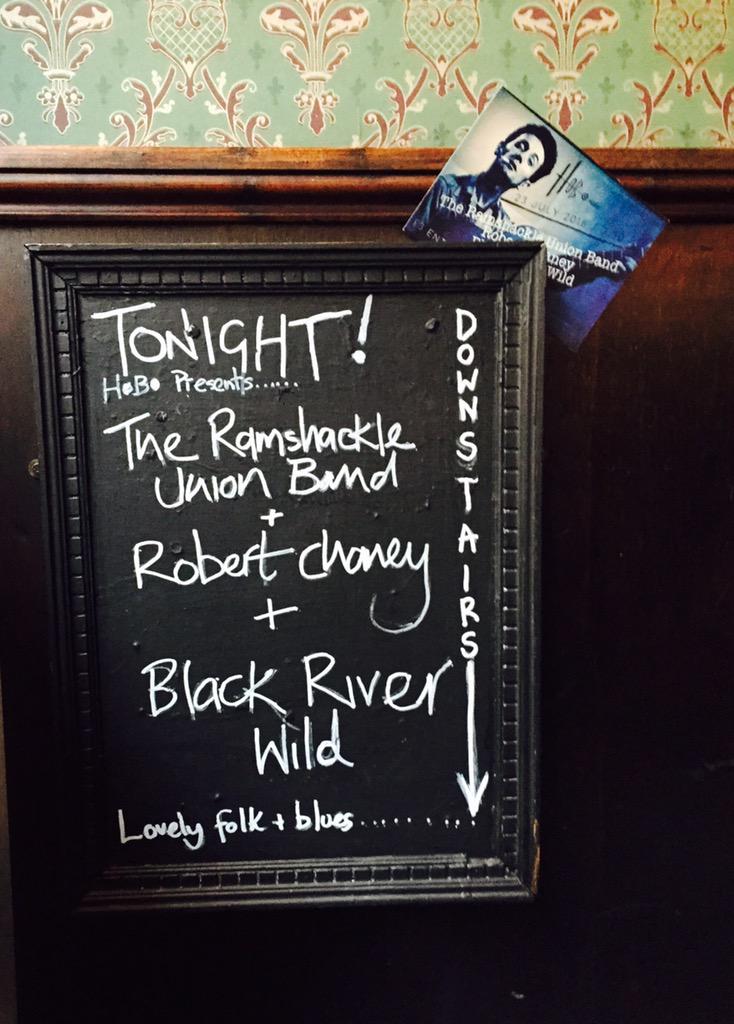 TONIGHT!
HoBo Presents......
The Ramshackle
Union Band
+
Robert Chaney
+
Black River
Wild
Lovely folk + blues..........
DOWNSTAIRS
HoBo
23 JULY 2016
The Ramshackle Union Band
ney
Wild